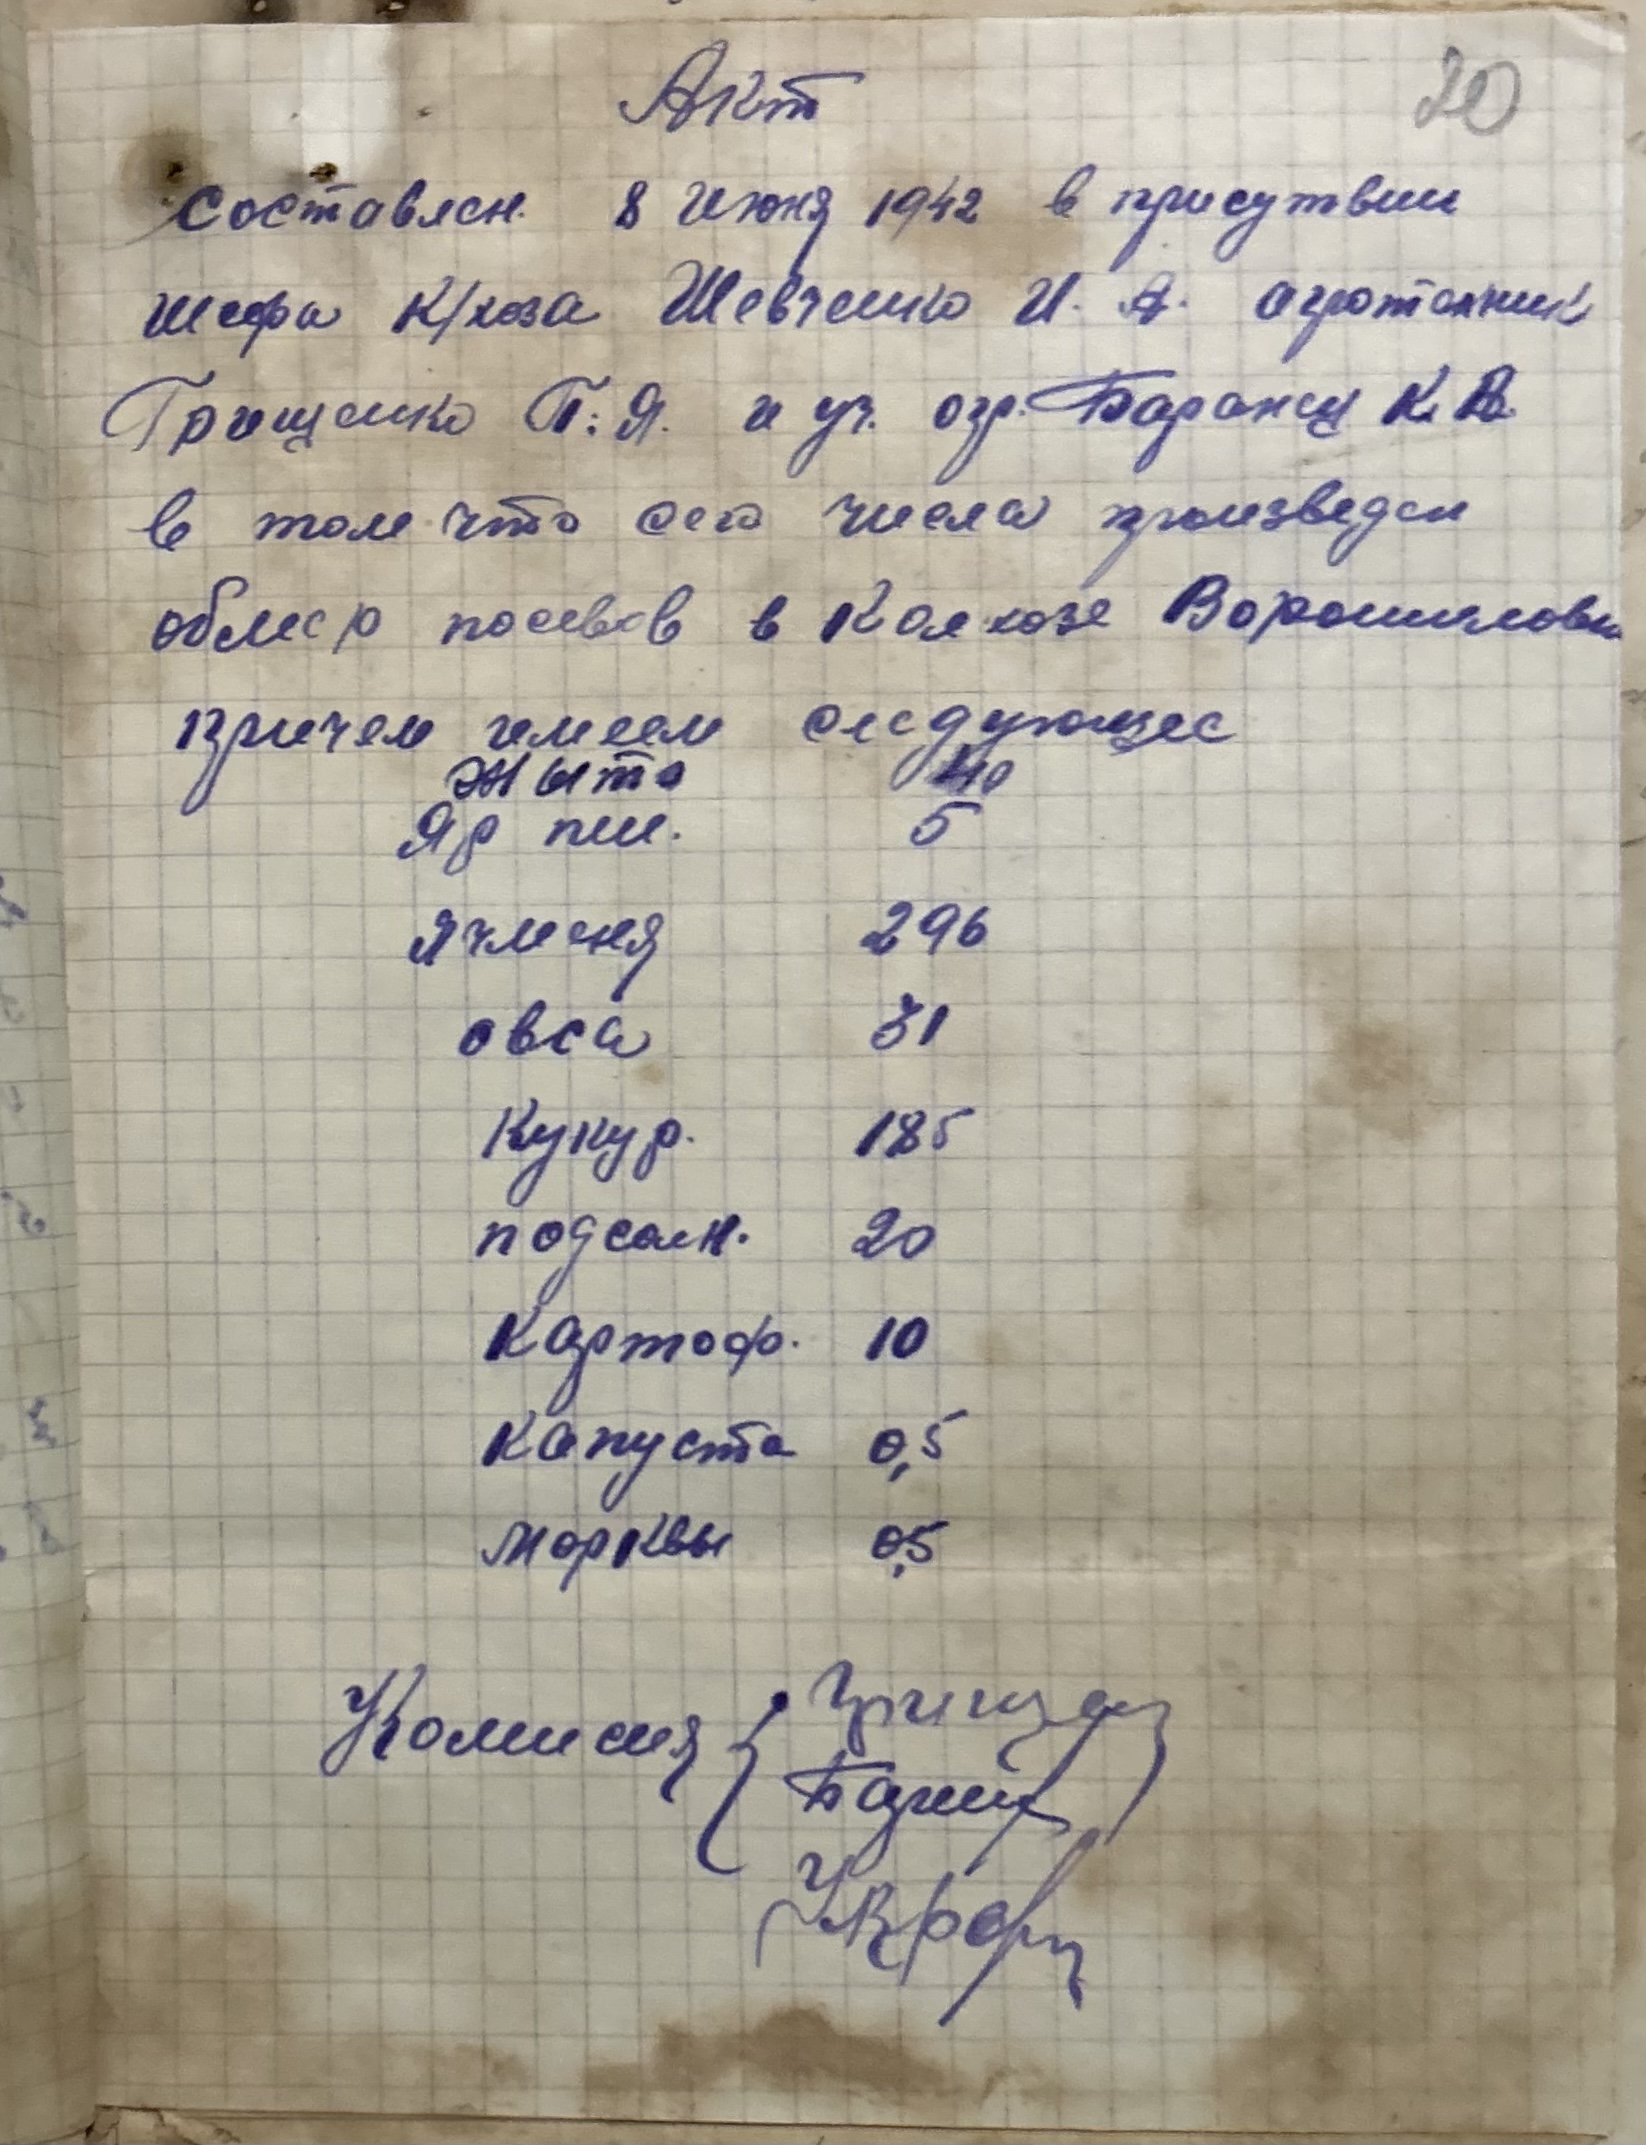 20
Акт
Составлен. 8 июня 1942 в присутвии
шефа К/хоза Шевченко И. А. агротехник
Грищенко П. Я. и уч. агр. Баранец К. В.
в том что сего числа произведен
обмер посевов в Колхозе Ворошилова
причем имеем следующее
Жыто 40
Яр пш. 5
Ячменя 296
овса 31
Кукур. 185
подсолн. 20
Картоф. 10
Капуста 0,5
морквы 0,5
Комисия